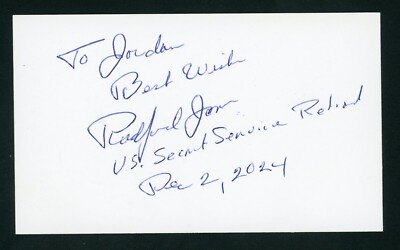 To Jordan
Best Wish
Radford Jones
U.S. Secret Service Retired
Dec 2, 2024